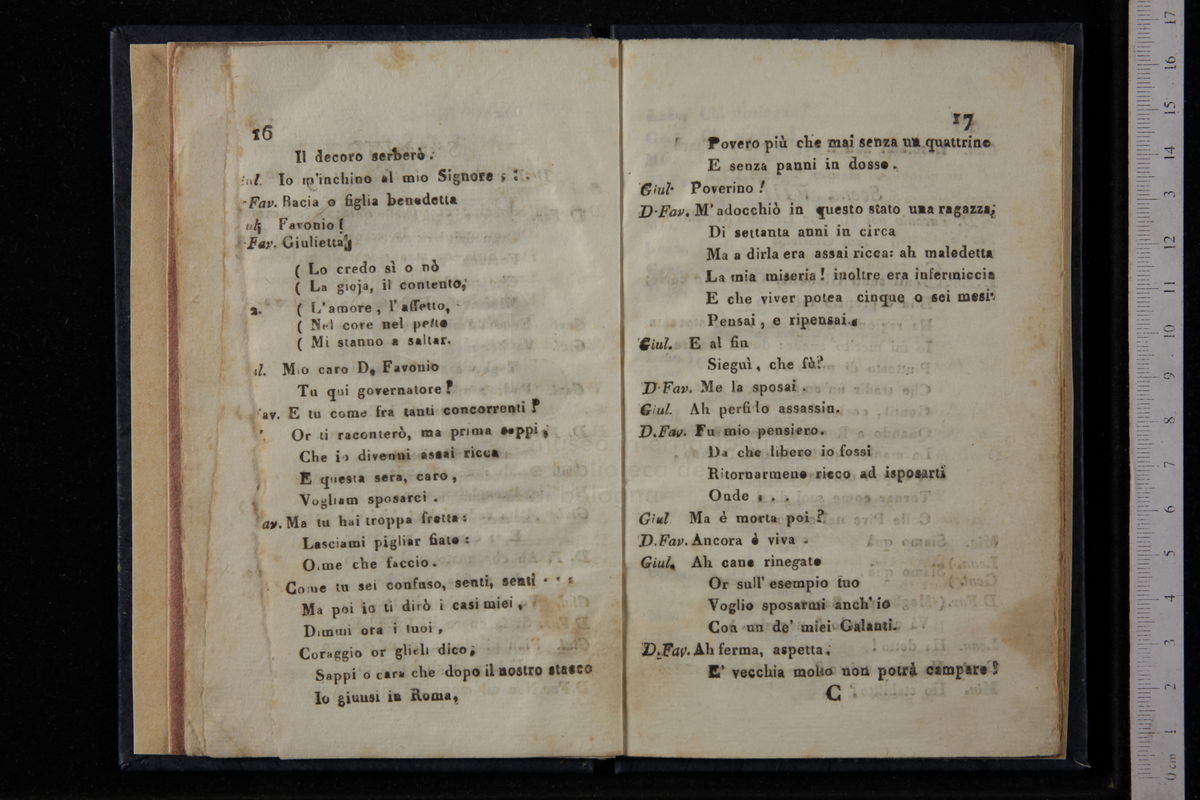 16
Il decoro serberò.
iul. Io m'inchino al mio Signore ; : .
Fav. Bacia o figlia benedetta
ul. Favonio!
Fav. Giulietta!
( Lo credo sì o nò
( La gioja, il contento,
2. ( L'amore, l'affetto,
( Nel core nel petto
( Mi stanno a saltar.
ul. Mio caro D. Favonio
Tu qui governatore?
av. E tu come fra tanti concorrenti?
Or ti raconterò, ma prima sappi,
Che io divenni assai ricca
E questa sera, caro,
Vogliam sposarci.
av. Ma tu hai troppa fretta:
Lasciami pigliar fiato:
Oime che faccio.
Come tu sei confuso, senti, senti . . .
Ma poi io ti dirò i casi miei,
Dimmi ora i tuoi,
Coraggio or glieli dico,
Sappi o cara che dopo il nostro stacco
Io giunsi in Roma,
17
Povero più che mai senza un quattrino
E senza panni in dosso.
Giul. Poverino!
D.Fav. M'adocchiò in questo stato una ragazza,
Di settanta anni in circa
Ma a dirla era assai ricca: ah maledetta
La mia miseria! inoltre era infermiccia
E che viver potea cinque o sei mesi.
Pensai, e ripensai.
Giul. E al fin
Sieguì, che fù?
D.Fav. Me la sposai.
Giul. Ah perfido assassin.
D.Fav. Fu mio pensiero.
Da che libero io fossi
Ritornarmene ricco ad isposarti
Onde . . .
Giul. Ma è morta poi?
D.Fav. Ancora è viva.
Giul. Ah cane rinegato
Or sull'esempio tuo
Voglio sposarmi anch'io
Con un de' miei Galanti.
D.Fav. Ah ferma, aspetta.
E' vecchia molto non potrà campare?
C
0 cm 1 2 3 4 5 6 7 8 9 10 11 12 13 14 15 16 17